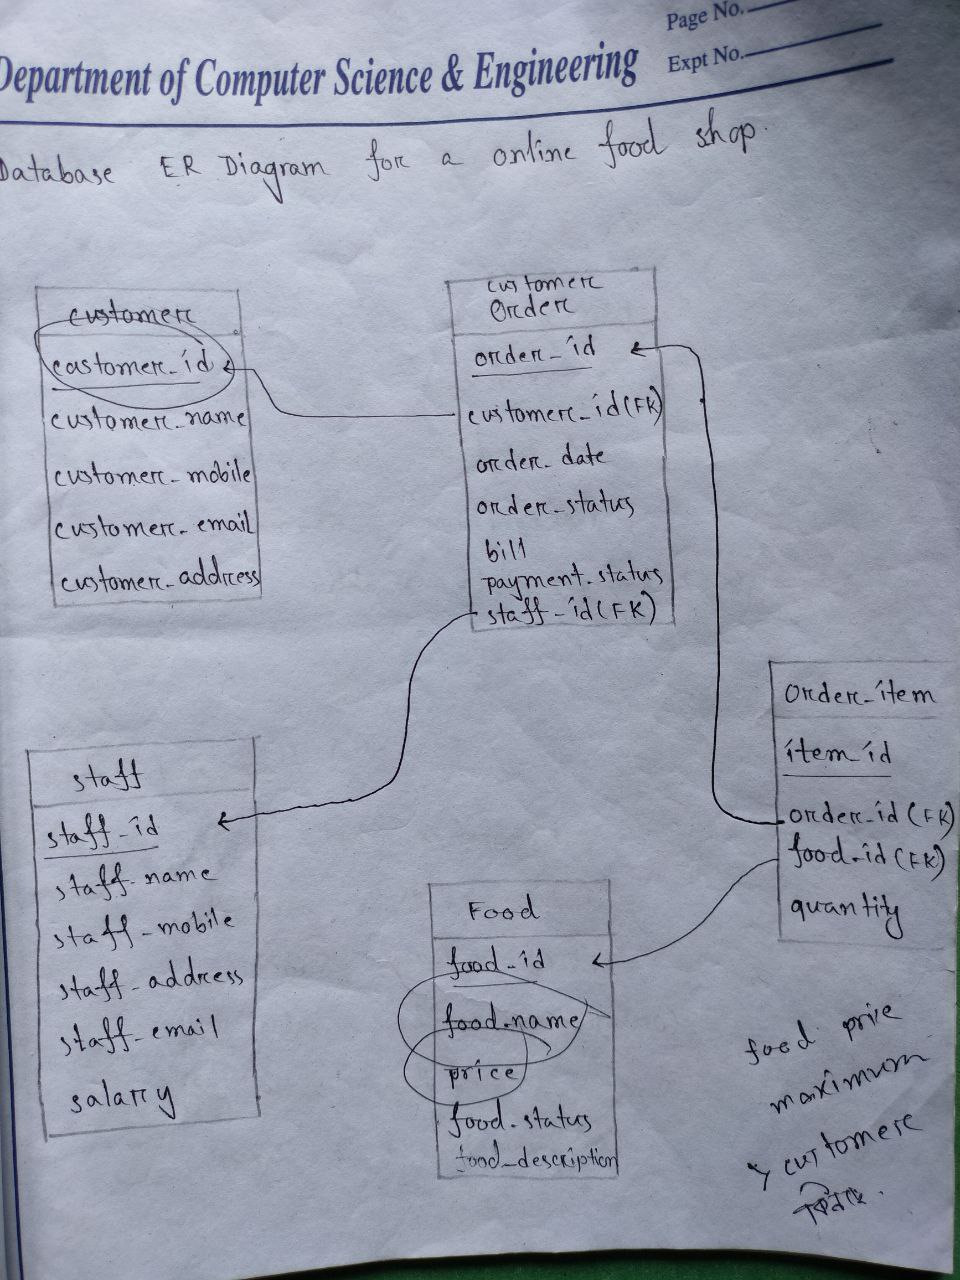 Page No.
Expt No.
Department of Computer Science & Engineering
Database ER Diagram for a online food shop.
customer
castomer_id
customer_name
customer_mobile
customer_email
customer_address
customer
Order
order_id
customer_id(FK)
order_date
order_status
bill
payment_status
staff_id(FK)
Order_item
item_id
order_id(FK)
food_id(FK)
quantity
staff
staff_id
staff_name
staff_mobile
staff_address
staff_email
salary
Food
food_id
food_name
price
food_status
food_description
food price
maximum
customer